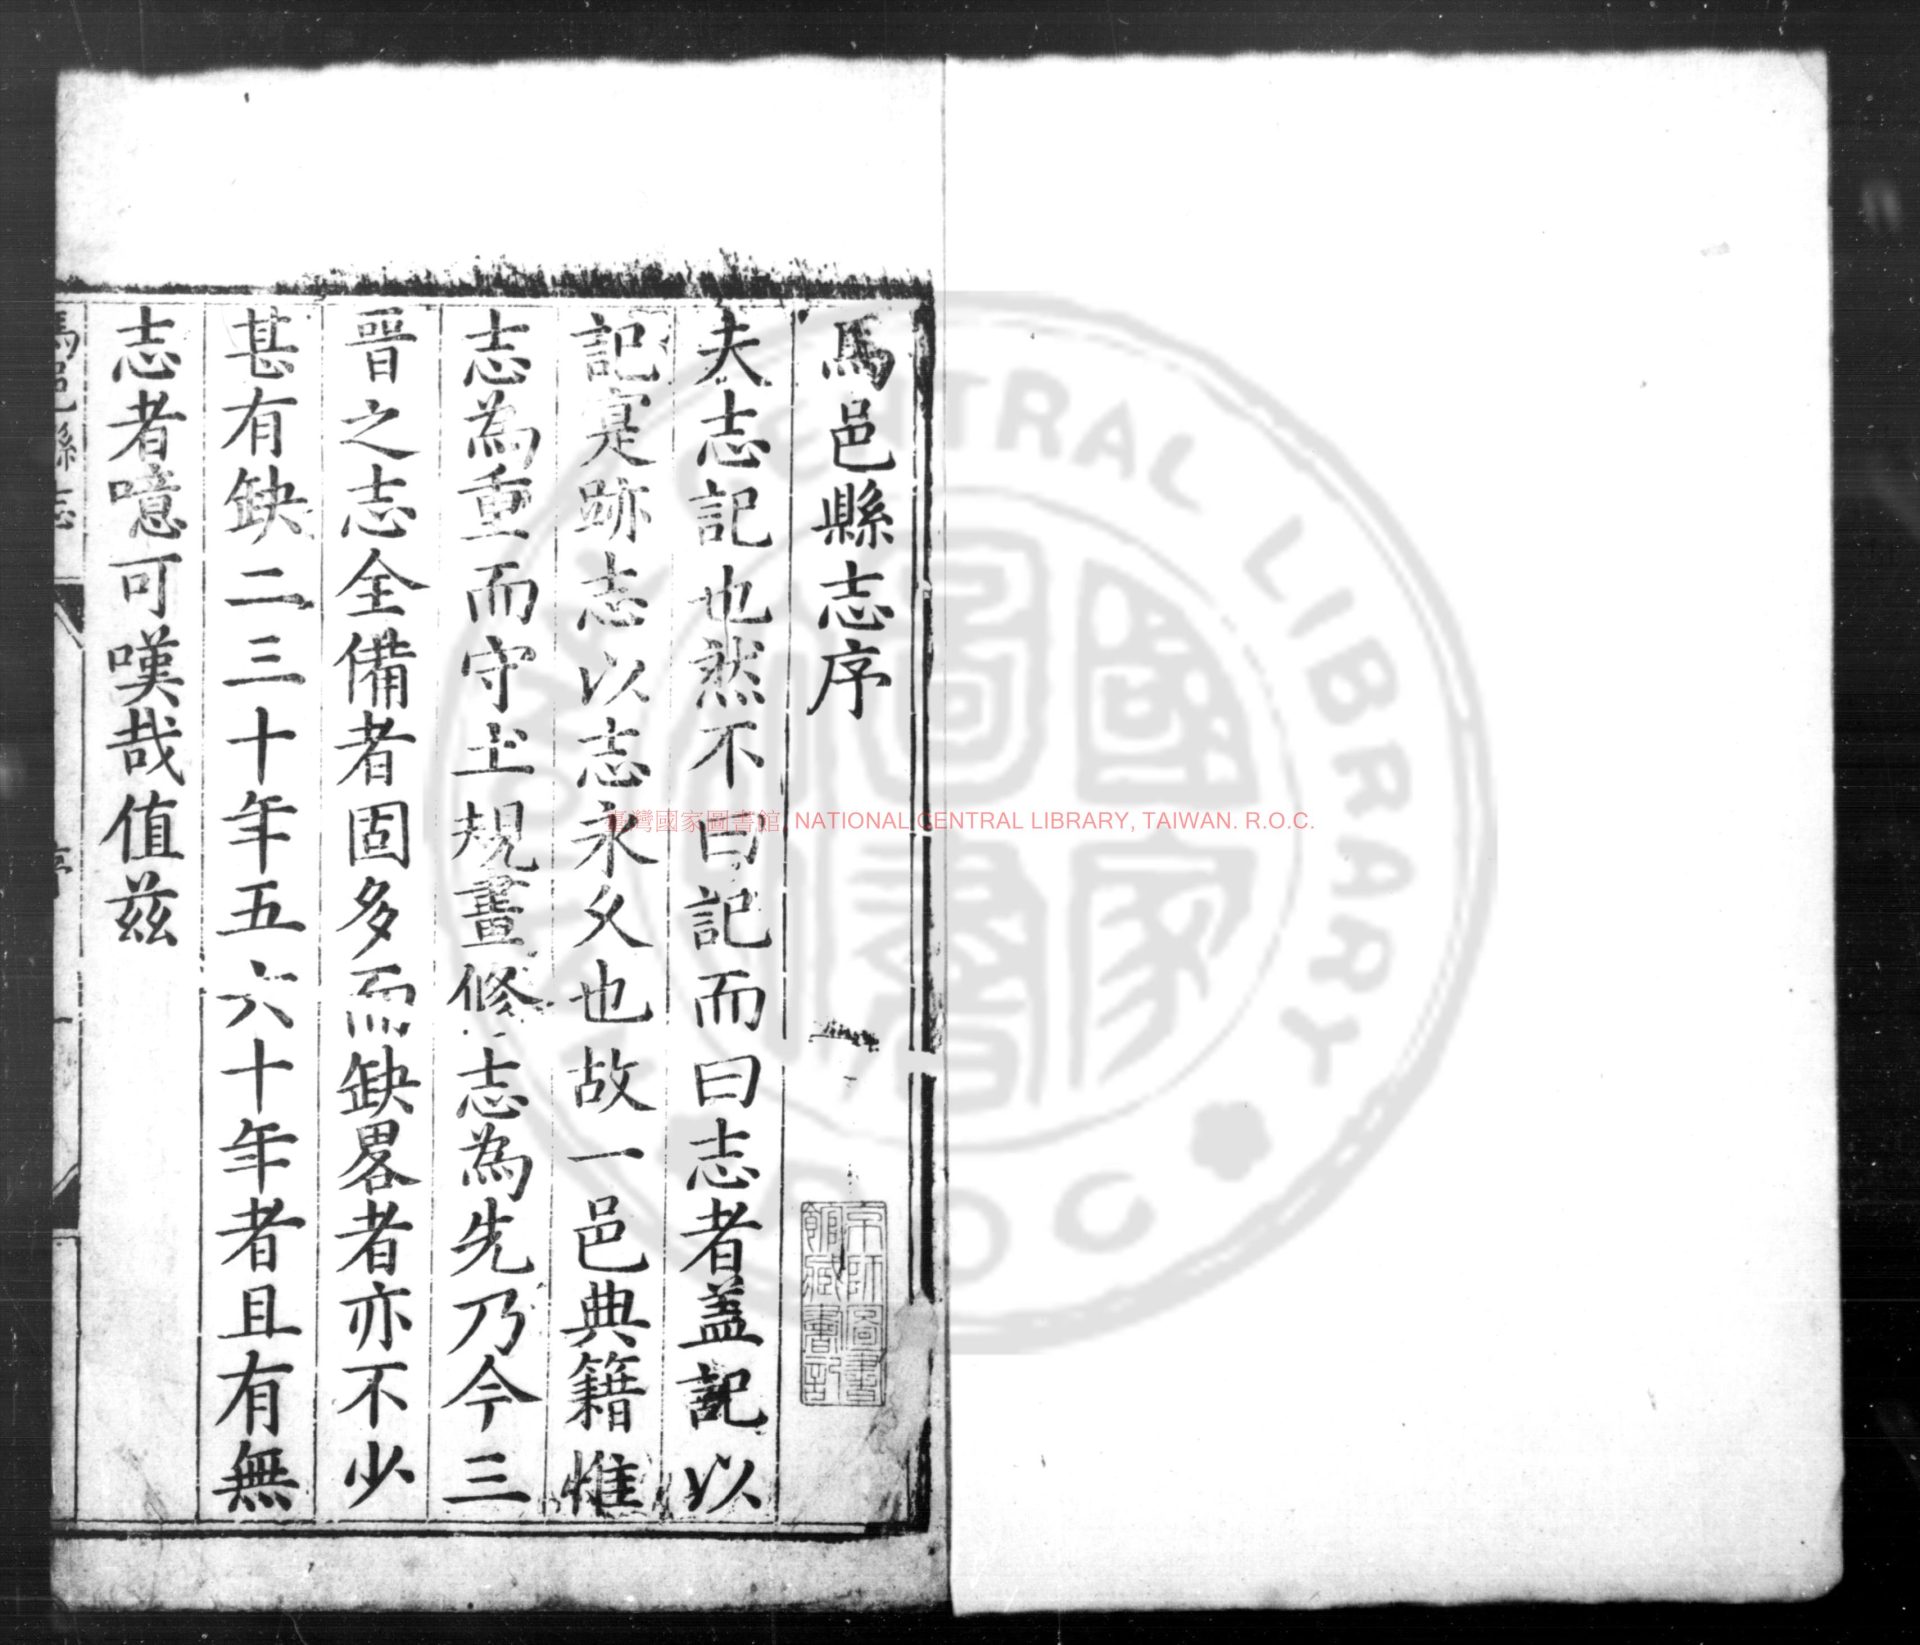 馬邑縣志序
夫志記也然不曰記而曰志者盖記以
記寔跡志以志永久也故一邑典籍惟
志為重而守土規畫修志為先乃今三
晋之志全備者固多而缺畧者亦不少
甚有缺二三十年五六十年者且有無
志者噫可嘆哉值茲
馬邑縣志
序
一
京師圖書
館藏書記
臺灣國家圖書館, NATIONAL CENTRAL LIBRARY, TAIWAN. R.O.C.